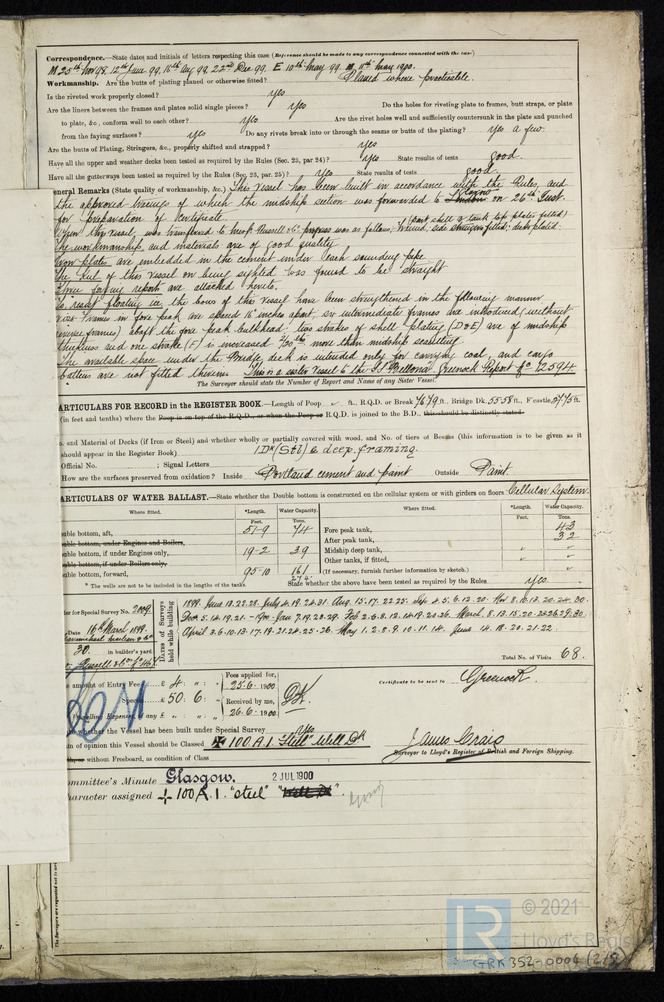 Correspondence.—State dates and initials of letters respecting this case (Reference should be made to any correspondence connected with the case)
M 25th Nov 98, 12th June 99, 16th Aug 99, 22nd Dec 99. E 10th May 99. M 11th May 1900.
Workmanship. Are the butts of plating planed or otherwise fitted? Planed where practicable.
Is the riveted work properly closed? yes
Are the liners between the frames and plates solid single pieces? yes Do the holes for riveting plate to frames, butt straps, or plate
to plate, &c., conform well to each other? yes Are the rivet holes well and sufficiently countersunk in the plate and punched
from the faying surfaces? yes Do any rivets break into or through the seams or butts of the plating? yes a few.
Are the butts of Plating, Stringers, &c., properly shifted and strapped? yes
Have all the upper and weather decks been tested as required by the Rules (Sec. 23, par 24)? yes State results of tests good.
Have all the gutterways been tested as required by the Rules (Sec. 23, par. 25)? yes State results of tests good.
eneral Remarks (State quality of workmanship, &c.) This vessel has been built in accordance with the Rules, and
the approved tracings of which the midship section was forwarded to London on 26th Inst.
for preparation of certificate.
(part shell & tank top plates fitted)
When this vessel, was transferred to Mess. Russell & Co. progress was as follows; framed, side stringers fitted, deck plated.
The workmanship, and materials are of good quality.
Iron plates are embedded in the cement under each sounding pipe
The keel of this vessel on being sighted was found to be straight
Three forging reports are attached hereto.
To resist floating ice the bows of this vessel have been strengthened in the following manner
viz: Frames in fore peak are spaced 16 inches apart, six intermediate frames are introduced (without
reverse frames) abaft the fore peak bulkhead: two strakes of shell plating (D & E) are of midship
thickness and one strake (F) is increased 1/20th more than midship scantling.
The available space under the Bridge deck is intended only for carrying coal, and cargo
battens are not fitted therein. This is a sister vessel to the SS "Bellona" Greenock Report No 12594.
The Surveyor should state the Number of Report and Name of any Sister Vessel.
ARTICULARS FOR RECORD in the REGISTER BOOK.—Length of Poop ft., R.Q.D. or Break 76.79 ft., Bridge Dk. 55.58 ft., F'castle 27.75 ft.
(in feet and tenths) where the Poop is on top of the R.Q.D., or when the Poop or R.Q.D. is joined to the B.D., this should be distinctly stated
. and Material of Decks (if Iron or Steel) and whether wholly or partially covered with wood, and No. of tiers of Beams (this information is to be given as it
should appear in the Register Book) 1 Dk (Stl) & deep framing.
Official No. ; Signal Letters
How are the surfaces preserved from oxidation? Inside Portland cement and paint Outside Paint.
ARTICULARS OF WATER BALLAST.—State whether the Double bottom is constructed on the cellular system or with girders on floors Cellular System.
Where fitted. *Length. Water Capacity. Where fitted. *Length. Water Capacity.
Feet. Tons. Feet. Tons.
uble bottom, aft, 51-9 74 Fore peak tank, 43
uble bottom, under Engines and Boilers, After peak tank, 32
uble bottom, if under Engines only, 19-2 39 Midship deep tank,
uble bottom, if under Boilers only, Other tanks, if fitted,
uble bottom, forward, 95-10 161 (If necessary, furnish further information by sketch.)
274
* The wells are not to be included in the lengths of the tanks. State whether the above have been tested as required by the Rules yes.
er for Special Survey No. 2009
Date 16th March 1899.
30. in builder's yard.
Dates of Surveys held while building
1899. June 13.22.28. July 4.19.24.31. Aug. 15.17.22.25. Sep 4.5.6.12.20. Nov 8.10.13.20.24.30.
Dec 5.14.19.21 - 1900 - Jan 7.19.23.29. Feb 2.6.8.12.14.19.20.26. March 8.13.15.20.24.26.29.30.
April 3.6.10.13.17.19.21.24.25.26. May 1.2.8.9.10.11.14. June 14.18.20.21.22.
Total No. of Visits 68.
e amount of Entry Fee £ 4 : " : Fees applied for, 25.6.1900
Special £ 50. 6 : Received by me, 26.6.1900
Travelling Expenses, if any £
Certificate to be sent to Greenock.
whether the Vessel has been built under Special Survey Yes
m of opinion this Vessel should be Classed ✠ 100 A.1. "Steel" Well Dk
James Craig
Surveyor to Lloyd's Register of British and Foreign Shipping.
without Freeboard, as condition of Class
ommittee's Minute Glasgow. 2 JUL 1900
haracter assigned ✠ 100 A.1. "steel" "Well Dk".
© 2021
LR
Lloyd's Regis
GRK352-0004 (2/5)